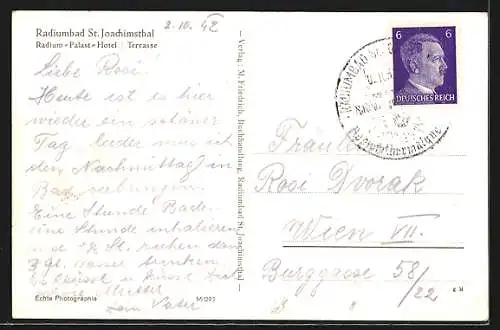 Radiumbad St. Joachimsthal
Radium-Palast-Hotel Terrasse
2.10.42
Liebe Rosi!
Heute ist es hier
wieder ein schöner
Tag leider muss ich
den Nachmittag in
Bad verbringen.
Eine Stunde Baden
eine Stunde inhalieren
St. ruhen dann
trinken
Es grüsst u. küsst Dich
Mutter
Vater
Echte Photographie
M/293
Verlag: M. Friedrich, Buchhandlung, Radiumbad St. Joachimsthal
6 6
DEUTSCHES REICH
RADIUMBAD ST.
Fräulein
Rosi Dvorak
Wien VII.
Burggasse 58/22